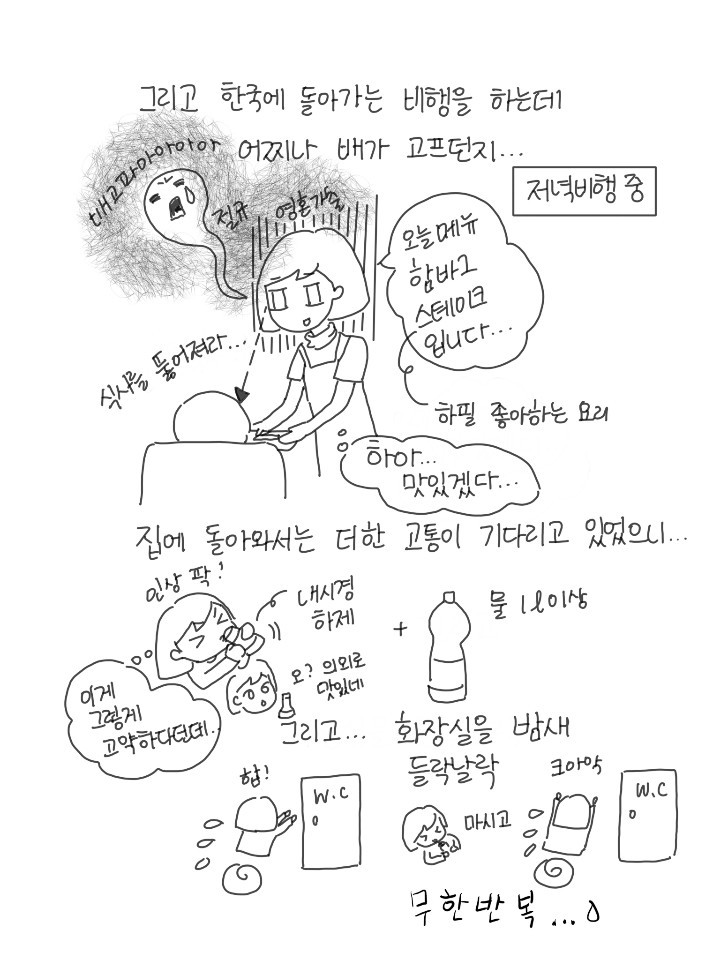 그리고 한국에 돌아가는 비행을 하는데
어찌나 배가 고프던지...
저녁비행 중
배고파아아아아아
절규
영혼가출
오늘메뉴
함바그
스테이크
입니다...
식사를 뚫어져라...
하필 좋아하는 요리
하아...
맛있겠다...
집에 돌아와서는 더한 고통이 기다리고 있었으니...
인상 팍!
내시경
하제
+
물 1l이상
오? 의외로
맛있네
이게
그렇게
고약하다던데..
그리고... 화장실을 밤새
들락날락
합!
W.C
마시고
크아악
W.C
무한반복...